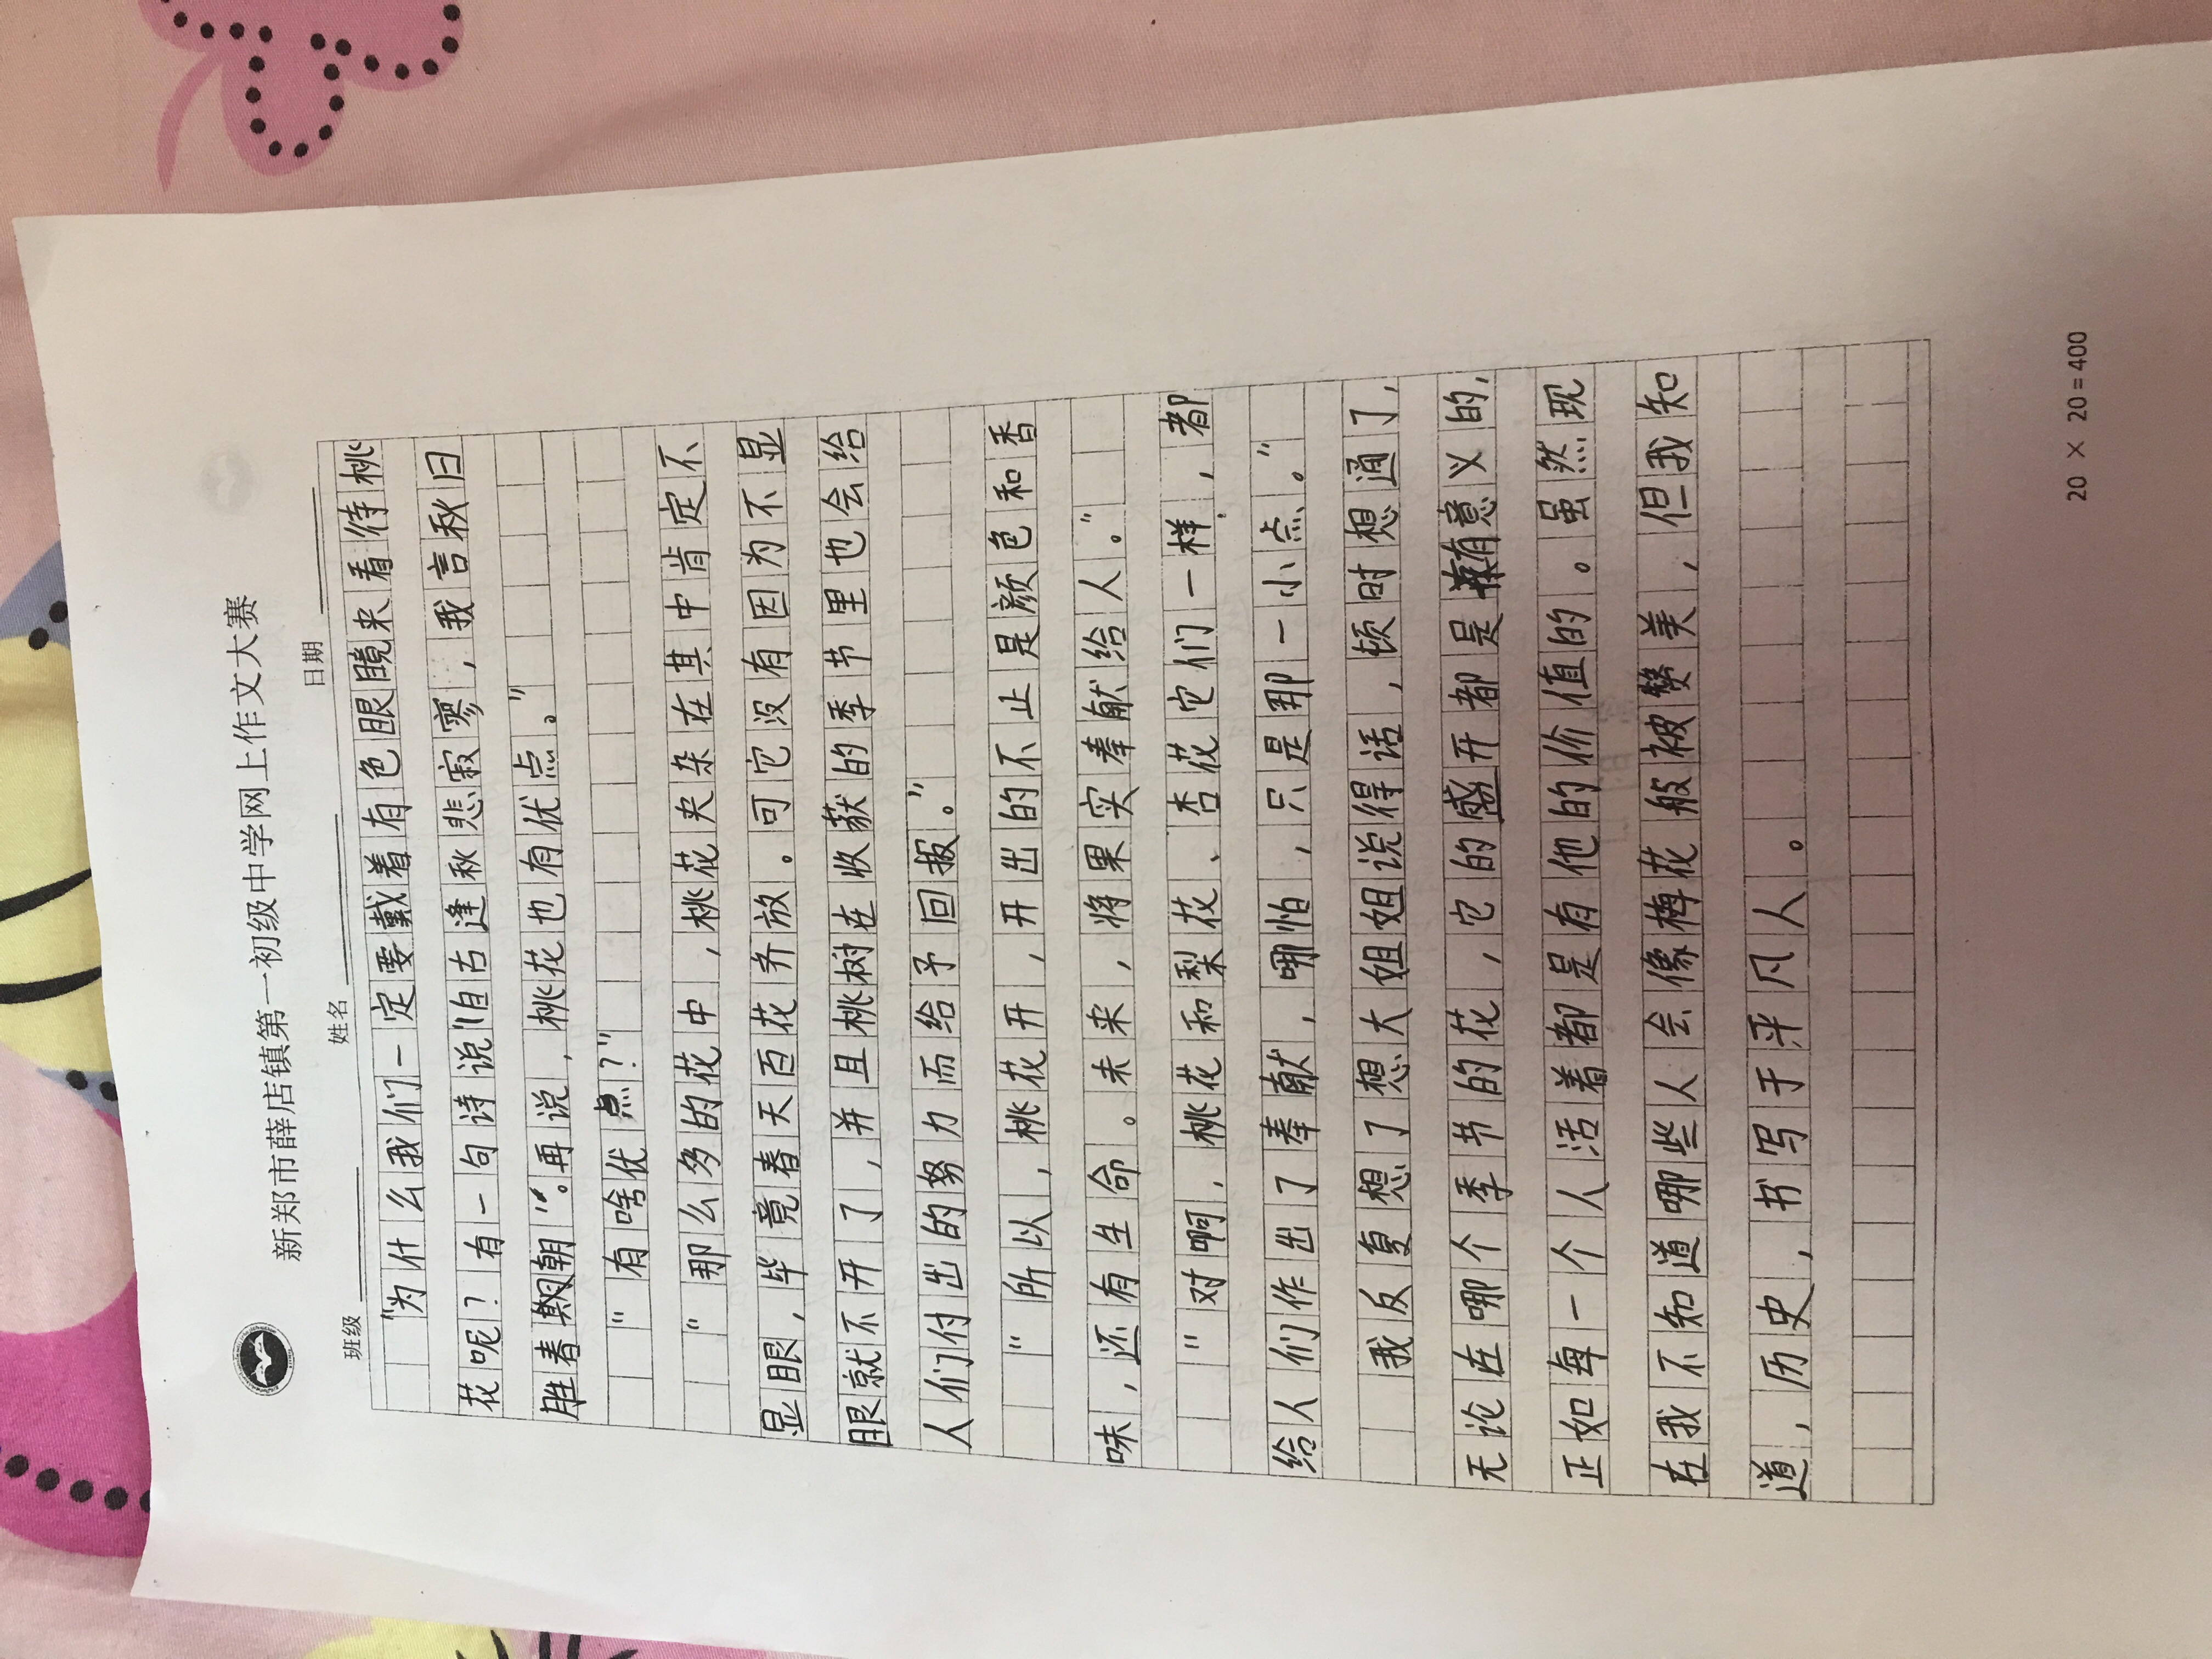 新郑市薛店镇第一初级中学网上作文大赛
班级 姓名 日期
“为什么我们一定要戴着有色眼睛来看待桃
花呢?有一句诗说“自古逢秋悲寂寥,我言秋日
胜春朝”。再说,桃花也有优点。”
“有啥优点?”
“那么多的花中,桃花夹杂在其中肯定不
显眼,毕竟春天百花齐放。可它没有因为不显
眼就不开了,并且桃树在收获的季节里也会给
人们付出的努力而给予回报。”
“所以,桃花开,开出的不止是颜色和香
味,还有生命。未来,将果实奉献给人。”
“对啊,桃花和梨花、杏花它们一样,都
给人们作出了奉献,哪怕,只是那一小点。”
我反复想了想大姐姐说得话,顿时想通了,
无论在哪个季节的花,它的盛开都是有意义的,
正如每一个人活着都是有他的价值的。虽然现
在我不知道哪些人会像梅花般被赞美,但我知
道,历史,书写于平凡人。
20 × 20 = 400